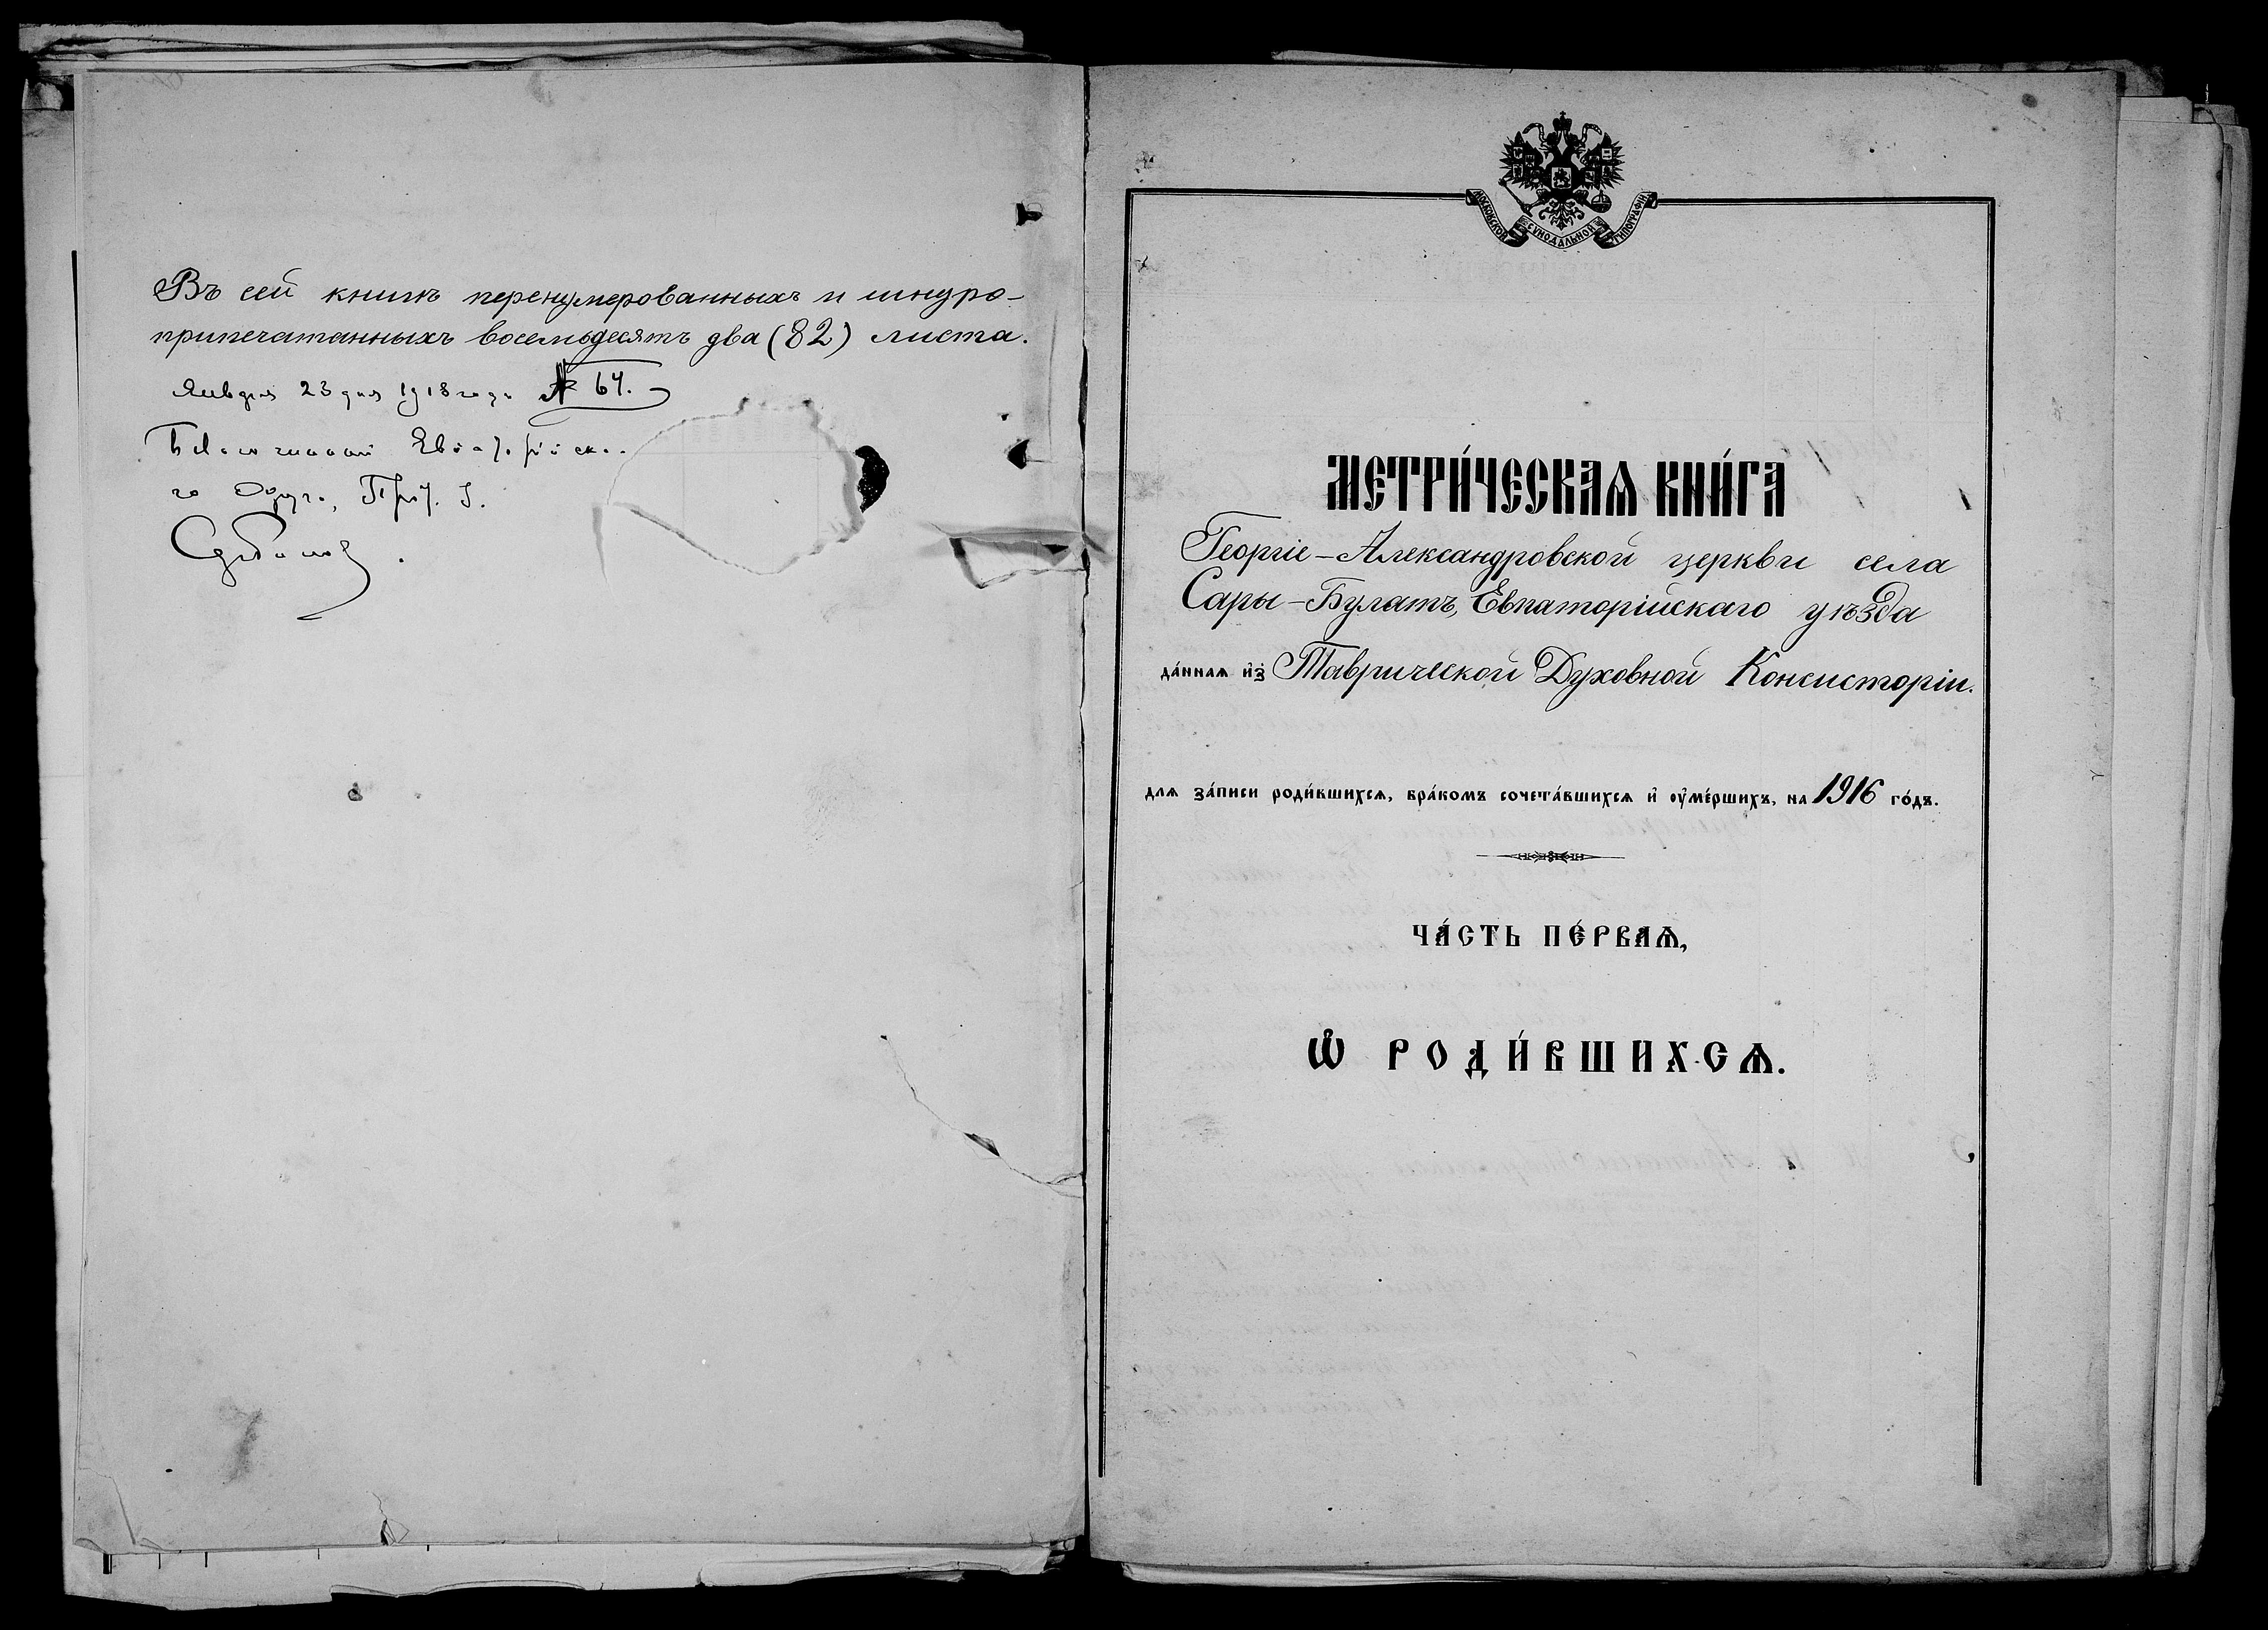 Въ сей книгѣ перенумерованныхъ и шнуро-
припечатанныхъ восемьдесятъ два (82) листа.
Января 23 дня 1918 года № 64.
Благочинный Евпаторійска-
го Округа, Прот. І.
МОСКОВСКОЙ СѴНОДАЛЬНОЙ ТИПОГРАФІИ
МЕТРИ́ЧЕСКАѦ КНИ́ГА
Георгіе-Александровской церкви села
Сары-Булатъ, Евпаторійскаго уѣзда
да́ннаѧ и҆з̾ Таврической Духовной Консисторіи.
длѧ за́писи роди́вшихсѧ, бра́комъ сочета́вшихсѧ и҆ оу҆ме́ршихъ, на 1916 го́дъ.
ЧА́СТЬ ПЕ́РВАѦ,
Ѽ РОДИ́ВШИХСѦ.